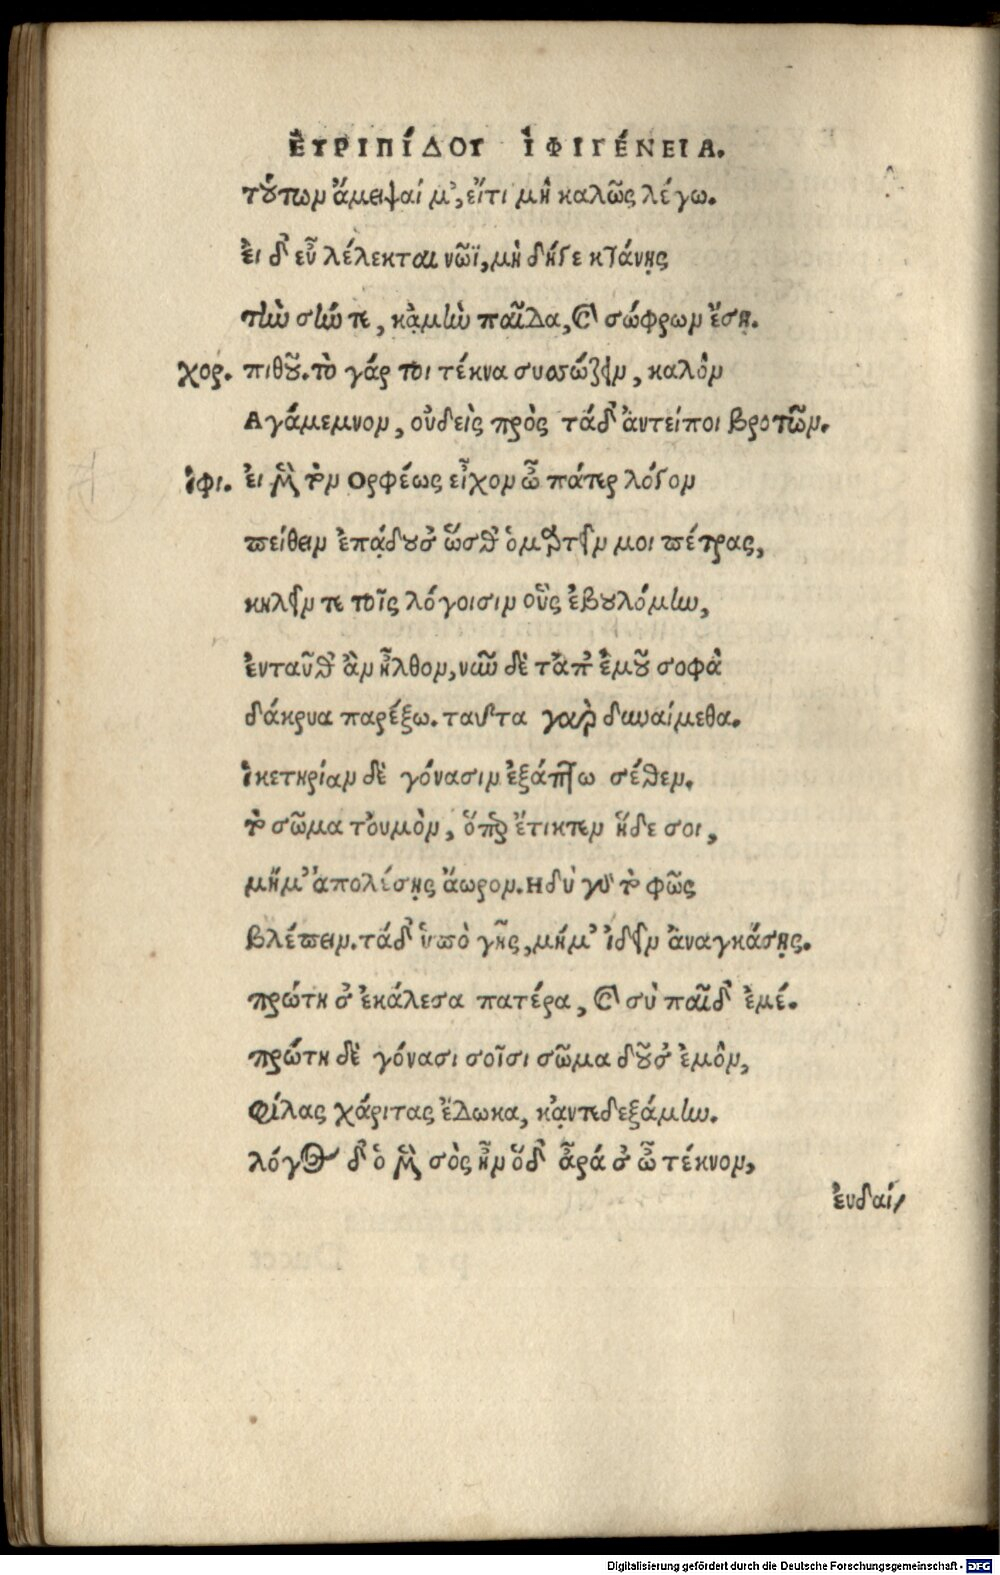 ἘΥΡΙΠΊΔΟΥ ἸΦΙΓΈΝΕΙΑ.
τούτων ἄμειψαί μ', εἴτι μὴ καλῶς λέγω.
ἐι δ' εὖ λέλεκται νῶϊ, μὴ δήγε κτάνῃς
τὴν σήν τε, κᾀμὴν παῖδα, καὶ σώφρων ἔσῃ.
χορ. πιθοῦ. τὸ γάρ τοι τέκνα συσσώζειν, καλὸν
Αγάμεμνον, οὐδεὶς πρὸς τάδ' ἀντείποι βροτῶν.
ἰφι. ἐι μὲν τὸν Ορφέως εἶχον ὦ πάτερ λόγον
πείθειν ἐπᾴδουσ' ὥσθ' ὁμαρτεῖν μοι πέτρας,
κηλεῖν τε τοῖς λόγοισιν οὓς ἐβουλόμην,
ἐνταῦθ' ἂν ἦλθον, νῦν δὲ τἀπ' ἐμοῦ σοφὰ
δάκρυα παρέξω. ταῦτα γὰρ δυναίμεθα.
ἱκετηρίαν δὲ γόνασιν ἐξάπτω σέθεν.
τὸ σῶμα τοὐμὸν, ὅπερ ἔτικτεν ἥδε σοι,
μήμ' ἀπολέσῃς ἄωρον. Ηδὺ γὰρ τὸ φῶς
βλέπειν. τάδ' ὑπὸ γῆς, μήμ' ἰδεῖν ἀναγκάσῃς.
πρώτη σ' ἐκάλεσα πατέρα, καὶ σὺ παῖδ' ἐμέ.
πρώτη δὲ γόνασι σοῖσι σῶμα δοῦσ' ἐμὸν,
φίλας χάριτας ἔδωκα, κᾀντεδεξάμην.
λόγος δ' ὁ μὲν σὸς ἦν ὅδ' ἆρά σ' ὦ τέκνον,
ἐυδαί/
Digitalisierung gefördert durch die Deutsche Forschungsgemeinschaft - DFG